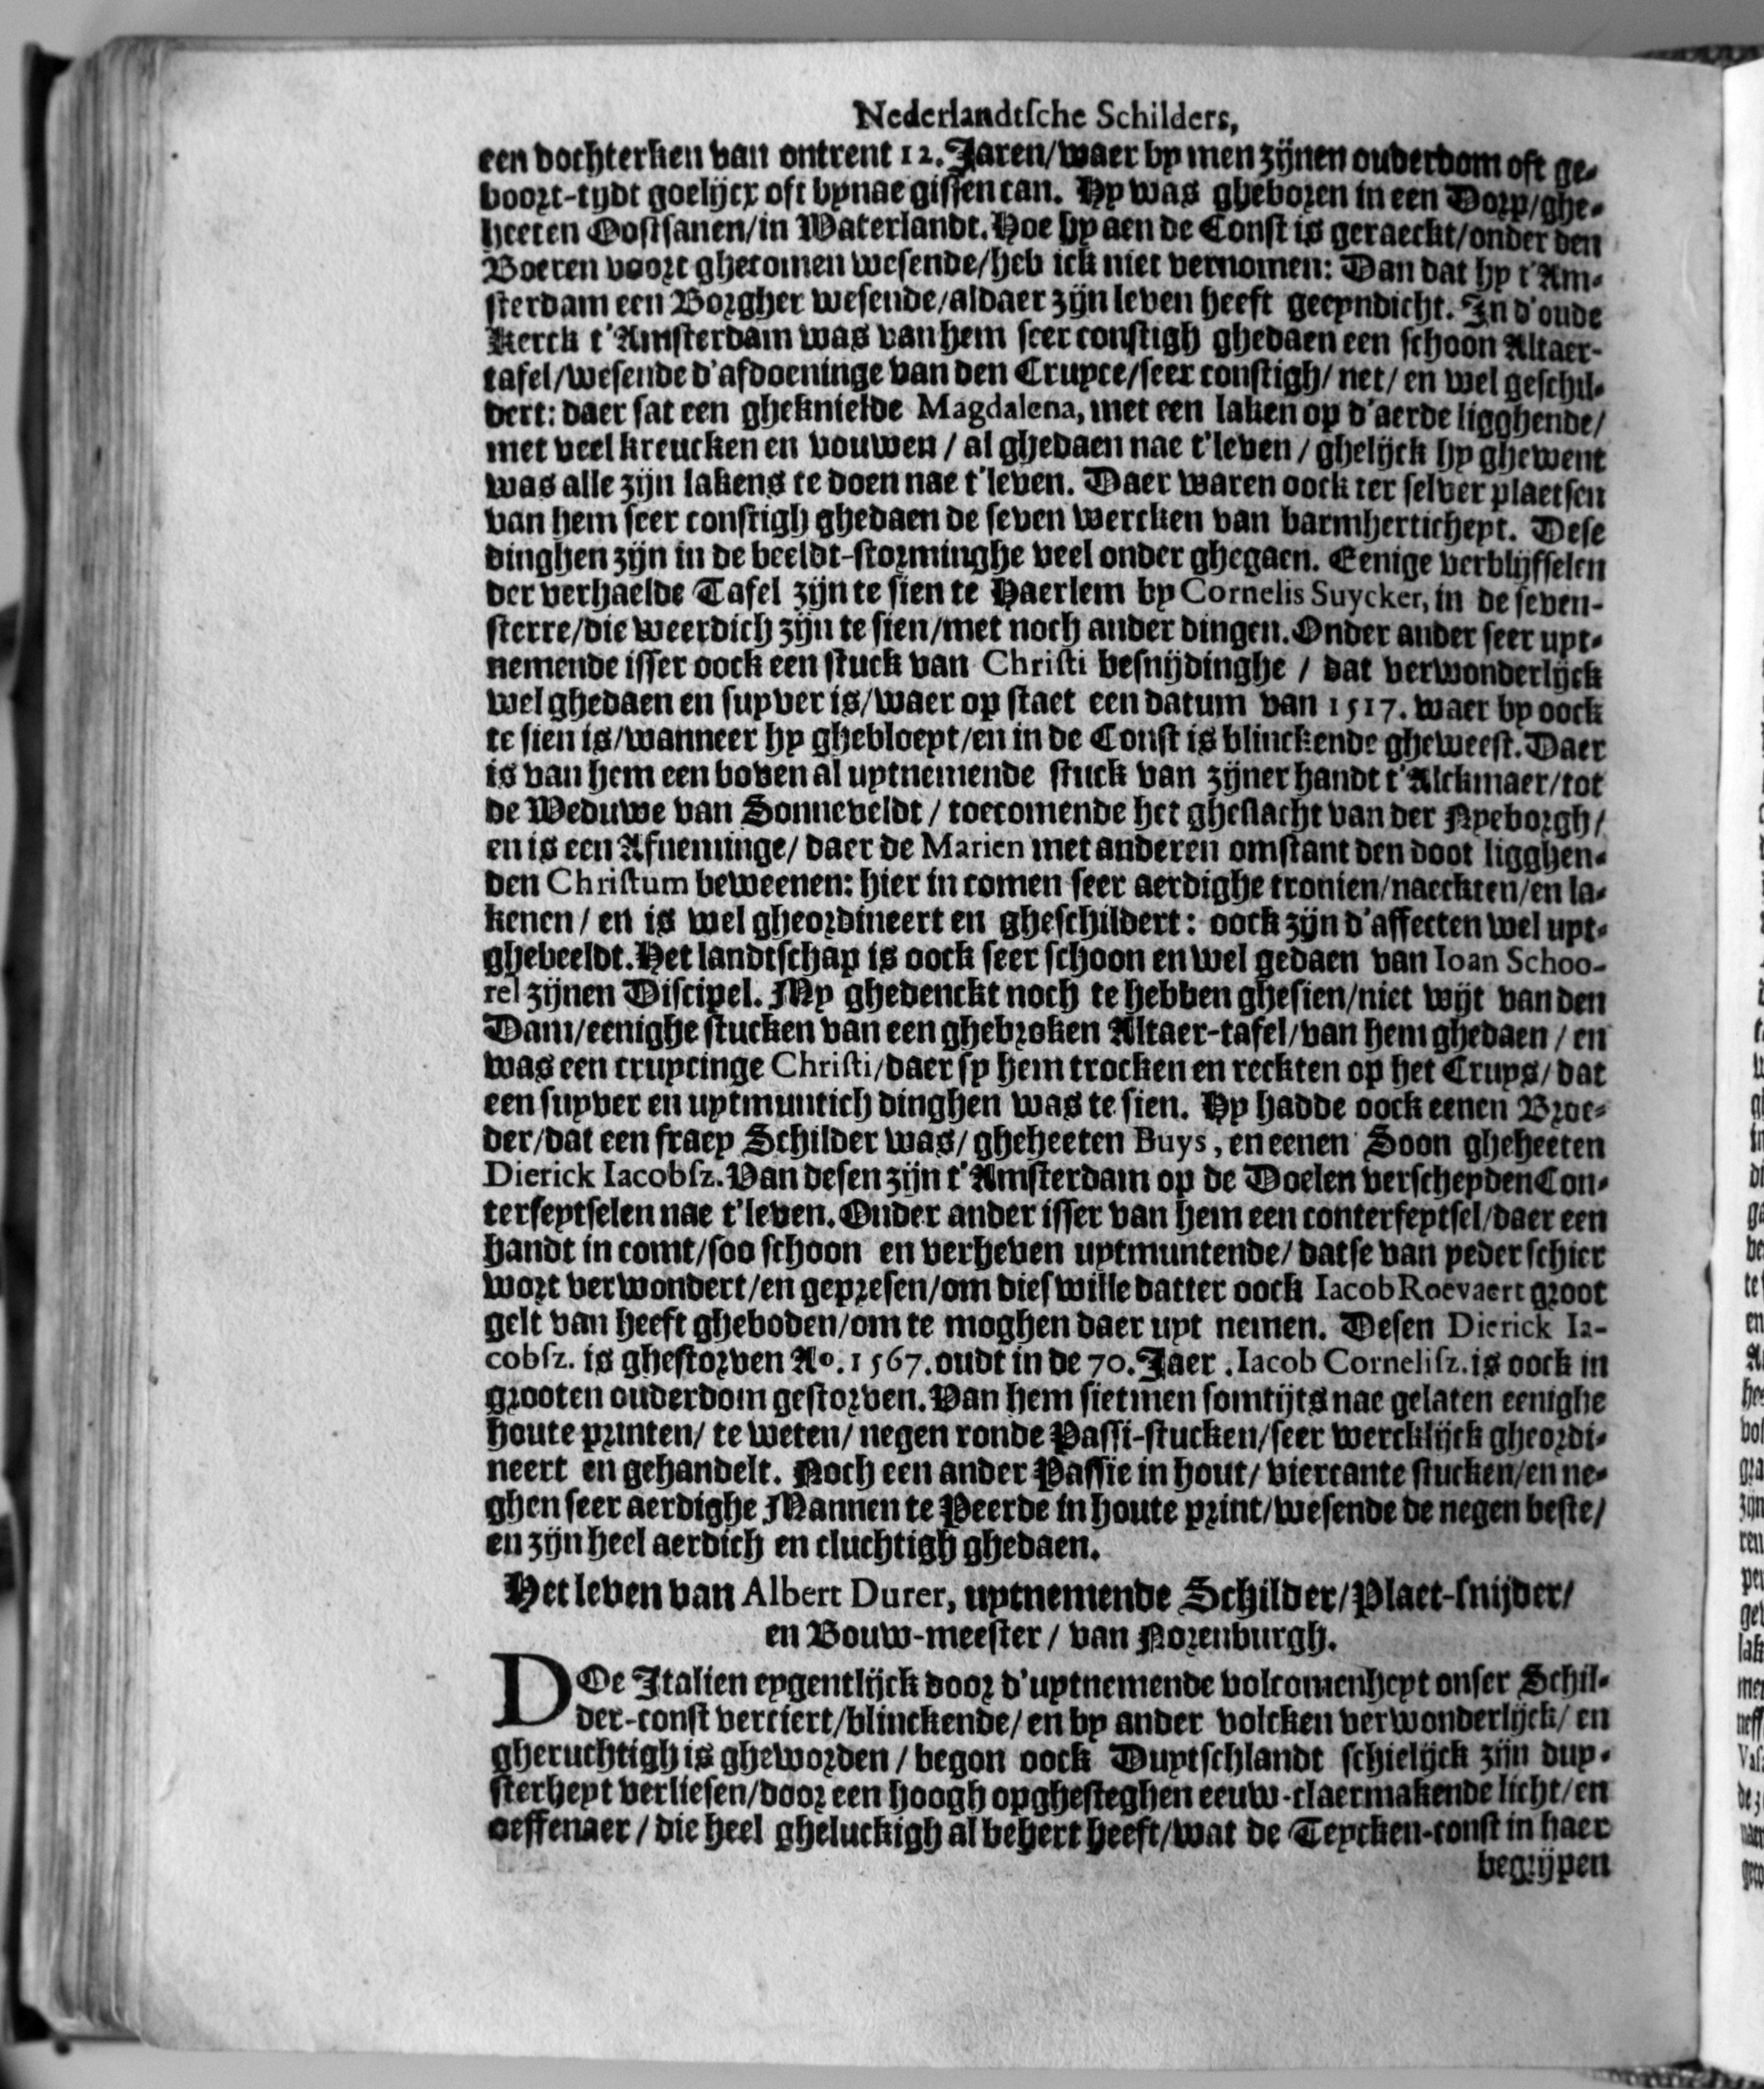 Nederlandtsche Schilders,
een dochterken van ontrent 12. Jaren/waer by men zijnen ouderdom oft ge-
boort-tydt goelijcx oft bynae gissen can. Hy was gheboren in een Dorp/ghe-
heeten Oostsanen/in Waterlandt. Hoe hy aen de Const is geraeckt/onder den
Boeren voort ghecomen wesende/heb ick niet vernomen: Dan dat hy t'Am-
sterdam een Borgher wesende/aldaer zijn leven heeft geeyndicht. In d'oude
Kerck t'Amsterdam was van hem seer constigh ghedaen een schoon Altaer-
tafel/wesende d'afdoeninge van den Cruyce/seer constigh/net/en wel geschil-
dert: daer sat een gheknielde Magdalena, met een laken op d'aerde ligghende/
met veel kreucken en vouwen/al ghedaen nae t'leven/ghelijck hy ghewent
was alle zijn lakens te doen nae t'leven. Daer waren oock ter selver plaetsen
van hem seer constigh ghedaen de seven wercken van barmherticheyt. Dese
dinghen zijn in de beeldt-storminghe veel onder ghegaen. Eenige verblijfselen
der verhaelde Tafel zijn te sien te Haerlem by Cornelis Suycker, in de seven-
sterre/die weerdich zijn te sien/met noch ander dingen. Onder ander seer uyt-
nemende isser oock een stuck van Christi besnijdinghe/dat verwonderlijck
wel ghedaen en suyver is/waer op staet een datum van 1517. waer by oock
te sien is/wanneer hy ghebloeyt/en in de Const is blinckende gheweest. Daer
is van hem een boven al uytnemende stuck van zijner handt t'Alckmaer/tot
de Weduwe van Sonneveldt/toecomende het gheslacht van der Nyeborgh/
en is een Afneminge/daer de Marien met anderen omstant den doot ligghen-
den Christum beweenen: hier in comen seer aerdighe tronien/naeckten/en la-
kenen/en is wel gheordineert en gheschildert: oock zijn d'affecten wel uyt-
ghebeeldt. Het landtschap is oock seer schoon en wel gedaen van Ioan Schoo-
rel zijnen Discipel. My ghedenckt noch te hebben ghesien/niet wijt van den
Dam/eenighe stucken van een ghebroken Altaer-tafel/van hem ghedaen/en
was een cruycinge Christi/daer sy hem trocken en reckten op het Cruys/dat
een suyver en uytmuntich dinghen was te sien. Hy hadde oock eenen Broe-
der/dat een fraey Schilder was/gheheeten Buys, en eenen Soon gheheeten
Dierick Iacobsz. Van desen zijn t'Amsterdam op de Doelen verscheyden Con-
terfeytselen nae t'leven. Onder ander isser van hem een conterfeytsel/daer een
handt in comt/soo schoon en verheven uytmuntende/datse van yeder schier
wort verwondert/en gepresen/om dies wille datter oock Iacob Roevaert groot
gelt van heeft gheboden/om te moghen daer uyt nemen. Desen Dierick Ia-
cobsz. is ghestorven Ao. 1567. oudt in de 70. Jaer. Iacob Cornelisz. is oock in
grooten ouderdom gestorven. Van hem sietmen somtijts nae gelaten eenighe
houte printen/te weten/negen ronde Passi-stucken/seer wercklijck gheordi-
neert en gehandelt. Noch een ander Passie in hout/viercante stucken/en ne-
ghen seer aerdighe Mannen te Peerde in houte print/wesende de negen beste/
en zijn heel aerdich en cluchtigh ghedaen.
Het leven van Albert Durer, uytnemende Schilder/Plaet-snijder/
en Bouw-meester/van Norenburgh.
DOe Italien eygentlijck door d'uytnemende volcomenheyt onser Schil-
der-const verciert/blinckende/en by ander volcken verwonderlijck/en
gheruchtigh is gheworden/begon oock Duytschlandt schielijck zijn duy-
sterheyt verliesen/door een hoogh opghesteghen eeuw-claermakende licht/en
oeffenaer/die heel gheluckigh al behert heeft/wat de Teycken-const in haer
begrijpen